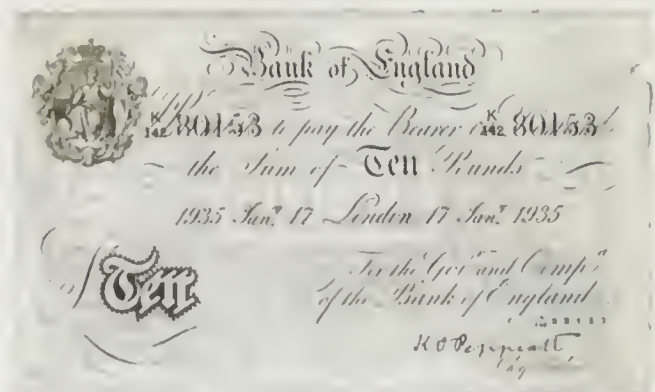 Bank of England
K 142 80153 to pay the Bearer K 142 80153
the Sum of Ten Pounds
1935 Jany 17 London 17 Jany 1935
For the Govr and Compa
of the Bank of England
Ten
K O Peppiatt